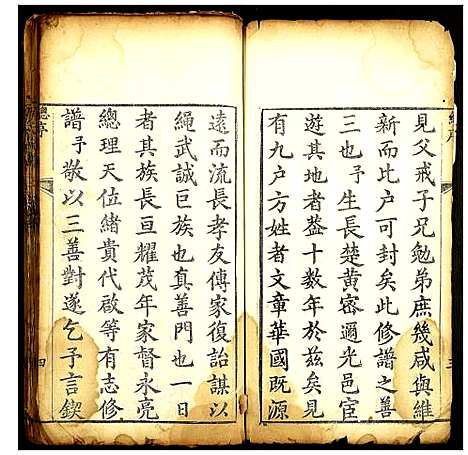 見父戒子兄勉弟庶幾咸與維
新而比户可封矣此修譜之善
三也予生長楚黄密邇光邑宦
遊其地者葢十數年於茲矣見
有九户方姓者文章華國既源
三
總序
遠而流長孝友傳家復詒謀以
繩武誠巨族也真善門也一日
者其族長亘耀茂年家督永亮
總理天位緒貴代啟等有志修
譜予敬以三善對遂乞予言鍥
總序
四